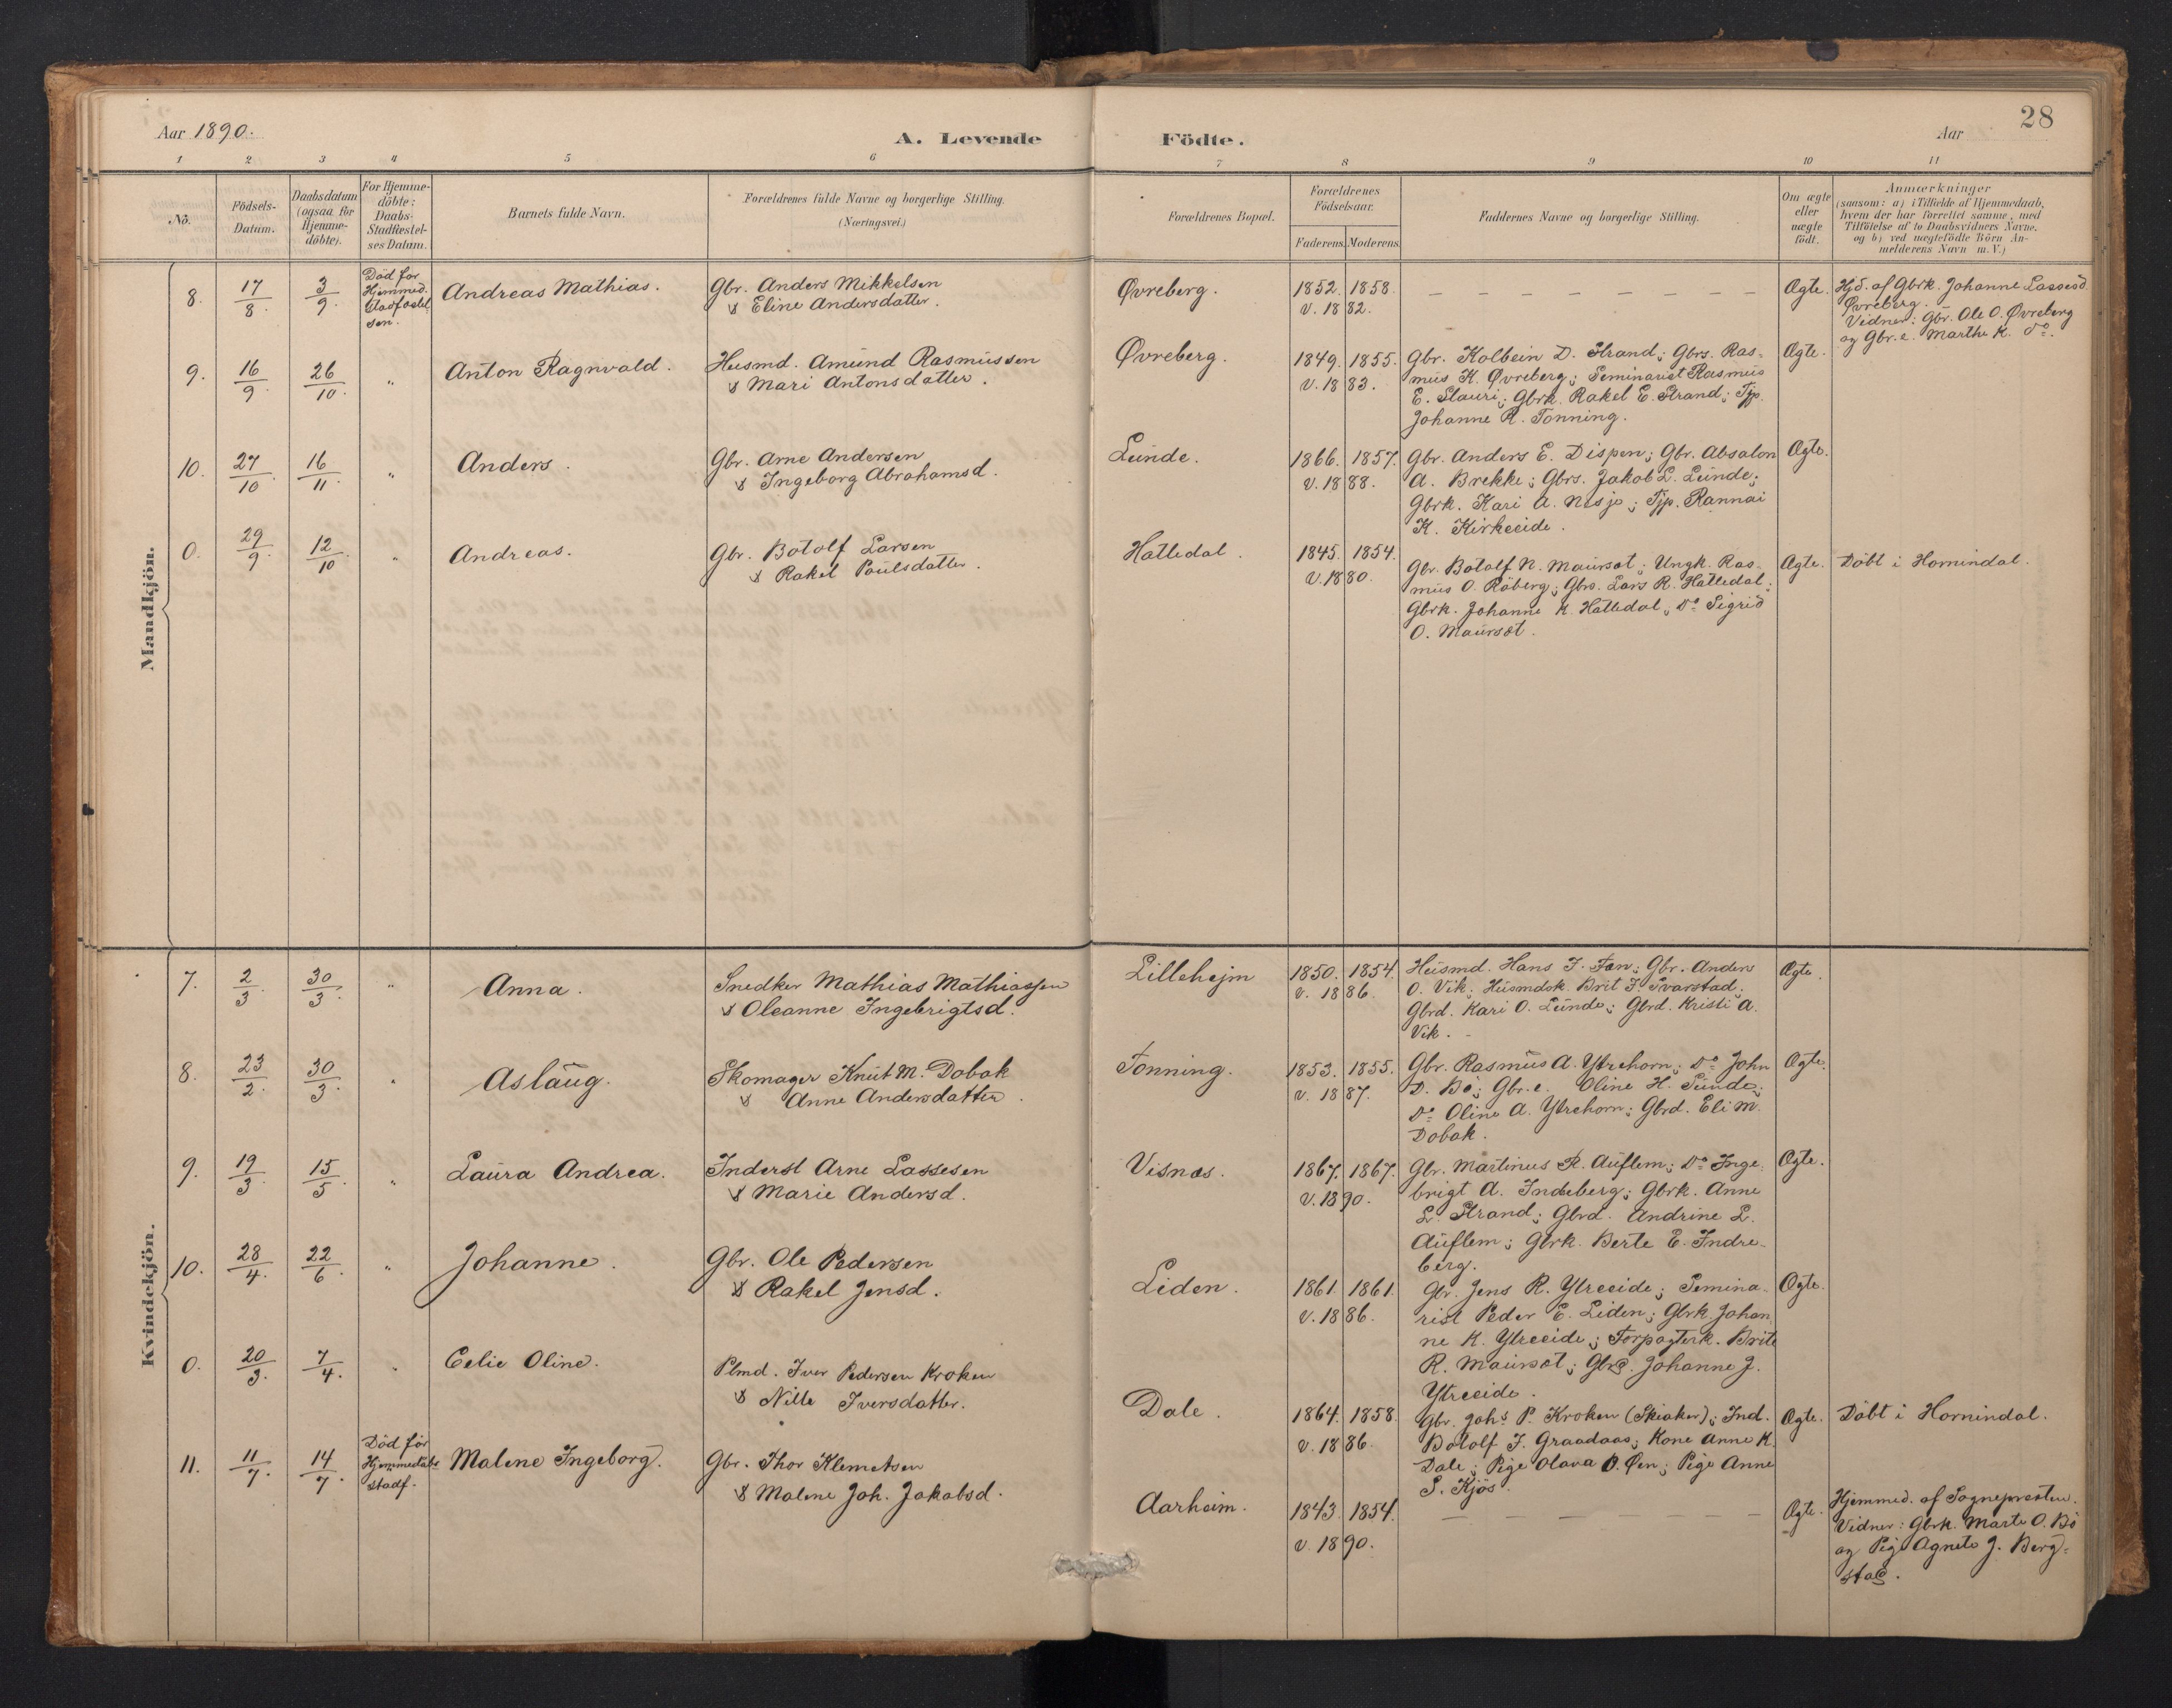 28
Aar 1890.
A. Levende
Födte.
Aar
1 2 3 4 5 6 7 8 9 10 11
No.
Födsels-
Datum.
Daabsdatum
(ogsaa for
Hjemme-
döbte).
For Hjemme-
döbte:
Daabs-
Stadfestel-
ses Datum.
Barnets fulde Navn.
Forældrenes fulde Navne og borgerlige Stilling.
(Næringsvei.)
Forældrenes Bopæl.
Forældrenes
Födselsaar.
Faderens. Moderens.
Faddernes Navne og borgerlige Stilling.
Om ægte
eller
uægte
födt.
Anmærkninger
(saasom: a) i Tilfælde af Hjemmedaab,
hvem der har forrettet samme, med
Tilföielse af to Daabsvidners Navne.
og b) ved uægtefödte Börn An-
melderens Navn m. V.)
Mandkjön.
8. 17/8. 3/9.
Död för
Hjemmed.
Stadfæstel-
sen.
Andreas Mathias.
Gbr. Anders Mikkelsen
& Eline Andersdatter.
Øvreberg.
1852. 1858.
v. 1882.
Ægte.
Hjd. af Gbrk. Johanne Lassesd
Øvreberg.
Vidner: Gbr. Ole O. Øvreberg
og Gbr.e. Marthe K. do.
9. 16/9 26/10. "
Anton Ragnvald.
Husmd. Amund Rasmussen
& Mari Antonsdatter.
Øvreberg.
1849. 1855.
v. 1883.
Gbr. Kolbein D. Strand; Gbrs. Ras-
mus K. Øvreberg; Seminarist Rasmus
E. Flauri; Gbrk. Rakel E. Strand; Tjp.
Johanne R. Tonning.
Ægte.
10. 27/10 16/11. "
Anders.
Gbr. Arne Andersen
& Ingeborg Abrahamsd.
Lunde.
1866. 1857.
v. 1888.
Gbr. Anders E. Dispen; Gbr. Absalon
A. Brekke; Gbrs. Jakob L. Lunde;
Gbrk. Kari A. Nesje; Tjp. Rannai
K. Kirkeeide.
Ægte.
0. 29/9. 12/10. "
Andreas.
Gbr. Botolf Larsen
& Rakel Poulsdatter.
Hattedal.
1845. 1854.
v. 1880.
Gbr. Botolf N. Maursæt; Ungk. Ras-
mus O. Raaberg; Gbrs. Lars R. Hattedal;
Gbrk. Johanne K. Hattedal; Do Sigrid
O. Maursæt.
Ægte.
Döbt i Hornindal.
Kvindekjön.
7. 2/3. 30/3. "
Anna.
Snedker Mathias Mathiassen
& Oleanne Ingebrigtsd.
Lillehejm
1850. 1854.
v. 1886.
Husmd. Hans J. Fæn; Gbr. Anders
O. Vik; Husmdsk. Brit J. Svarstad;
Gbrd. Kari O. Lunde; Gbrd. Kristi A.
Vik.
Ægte.
8. 23/2. 30/3. "
Aslaug.
Skomager Knut M. Dobak
& Anne Andersdatter.
Tonning.
1853. 1855.
v. 1887.
Gbr. Rasmus A. Ytrehorn; Do John
D. Bö; Gbr.e. Oline H. Sunde;
Do Oline A. Ytrehorn; Gbrd. Eli M.
Dobak.
Ægte.
9. 19/3. 15/5. "
Laura Andrea.
Inderst Arne Lassesen
& Marie Andersd.
Visnæs.
1867. 1867.
v. 1890.
Gbr. Martinus R. Auflem; Do Inge-
brigt A. Indreberg; Gbrk. Anne
L. Strand; Gbrd. Andrine L.
Auflem; Gbrk. Berte E. Indre-
berg.
Ægte.
10. 28/4. 22/6. "
Johanne.
Gbr. Ole Pedersen
& Rakel Jensd.
Liden.
1861. 1861.
v. 1886.
Gbr. Jens R. Ytreeide; Semina-
rist Peder E. Liden; Gbrk Johan-
ne K. Ytreeide; Forpagterk. Brite
R. Maursæt; Gbrd. Johanne J.
Ytreeide.
Ægte.
0. 20/3. 7/4. "
Celie Oline.
Plmd. Iver Pedersen Kroken
& Nille Iversdatter.
Dale.
1864. 1858.
v. 1886.
Gbr. Johs P. Kroken (Skiaker); Ind.
Botolf J. Graadaas; Kone Anne K.
Dale; Pige Olava O. Øen; Pige Anne
S. Kjös.
Ægte.
Döbt i Hornindal.
11. 11/7. 14/7.
Död för
Hjemmedaabs
stadf.
Malene Ingeborg.
Gbr. Thor Klemetsen
& Malene Joh. Jakobsd.
Aarheim.
1843. 1854.
v. 1890.
Ægte.
Hjemmed. af Sognepresten.
Vidner: Gbrk. Marte O. Bö
og Pige Agnete J. Berg-
stad.